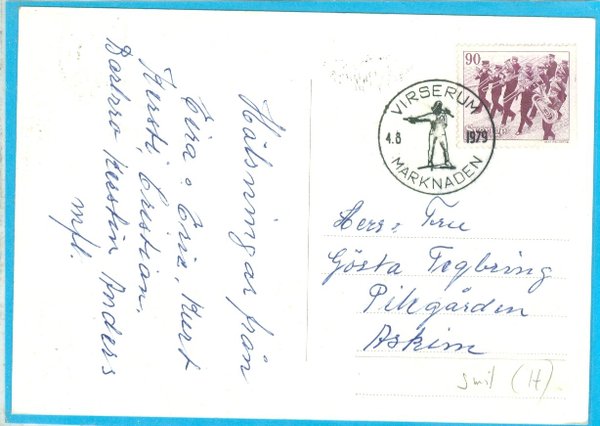 Hälsningar från
Eira o Eric, Kurt
Kersti, Cristian,
Barbro Kerstin Anders
mfl.
90
VIRSERUM
4.8 1979
MARKNADEN
Herr o Fru
Gösta Tegbring
Pilegården
Askim
(H)